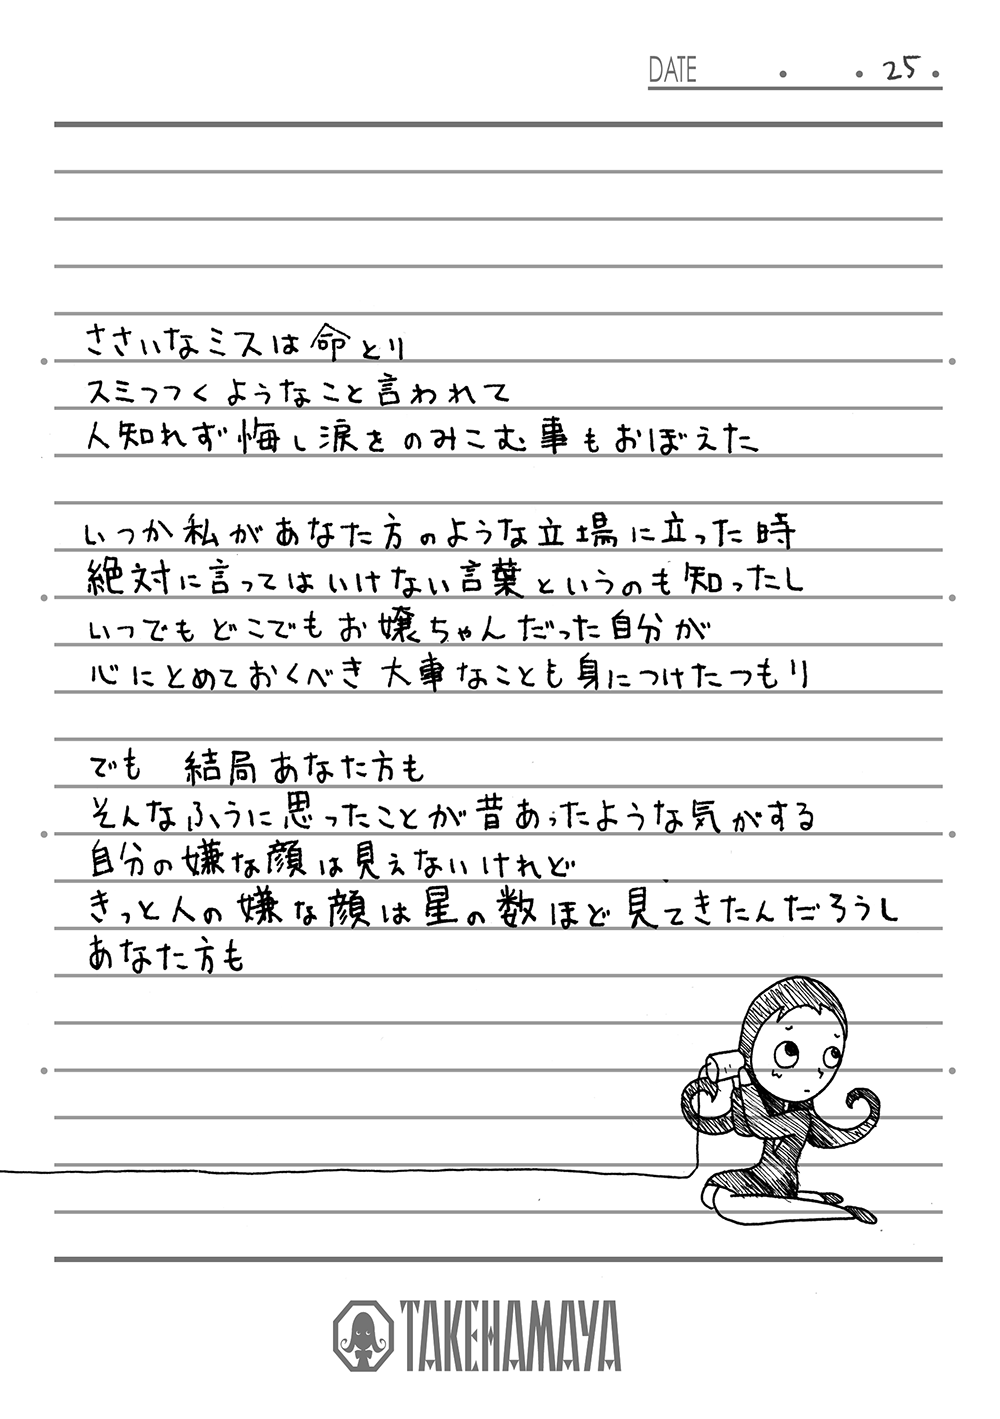 DATE ・ ・ 25 ・
ささいなミスは命とり
スミつつくようなこと言われて
人知れず悔し涙をのみこむ事もおぼえた
いつか私があなた方のような立場に立った時
絶対に言ってはいけない言葉というのも知ったし
いつでもどこでもお嬢ちゃんだった自分が
心にとめておくべき大事なことも身につけたつもり
でも　結局あなた方も
そんなふうに思ったことが昔あったような気がする
自分の嫌な顔は見えないけれど
きっと人の嫌な顔は星の数ほど見てきたんだろうし
あなた方も
TAKEHAMAYA